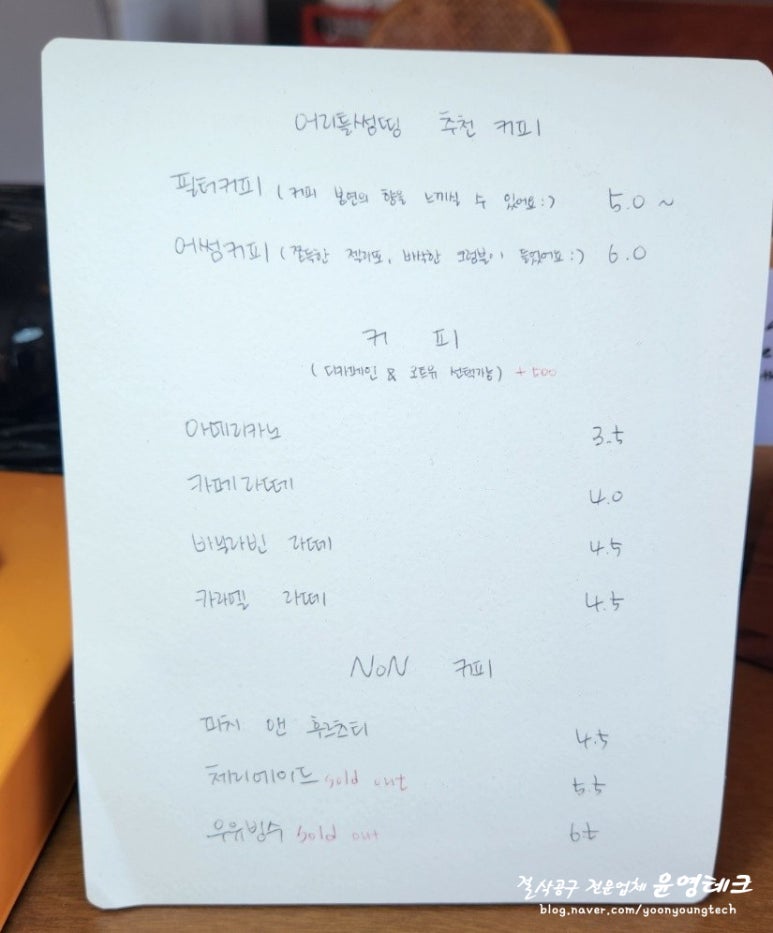 어리틀썸띵 추천 커피
필터커피 (커피 본연의 향을 느끼실 수 있어요:) 5.0 ~
어썸커피 (쫀득한 젝리또, 바삭한 크럼블이 들갔어요:) 6.0
커 피
(디카페인 & 오트유 선택가능) + 500
아메리카노 3.5
카페라떼 4.0
바닐라빈 라떼 4.5
카라멜 라떼 4.5
NoN 커피
피치 앤 후르츠티 4.5
체리에이드 sold out 5.5
우유빙수 sold out 6.7
절삭공구 전문업체 윤영테크
blog.naver.com/yoonyoungtech